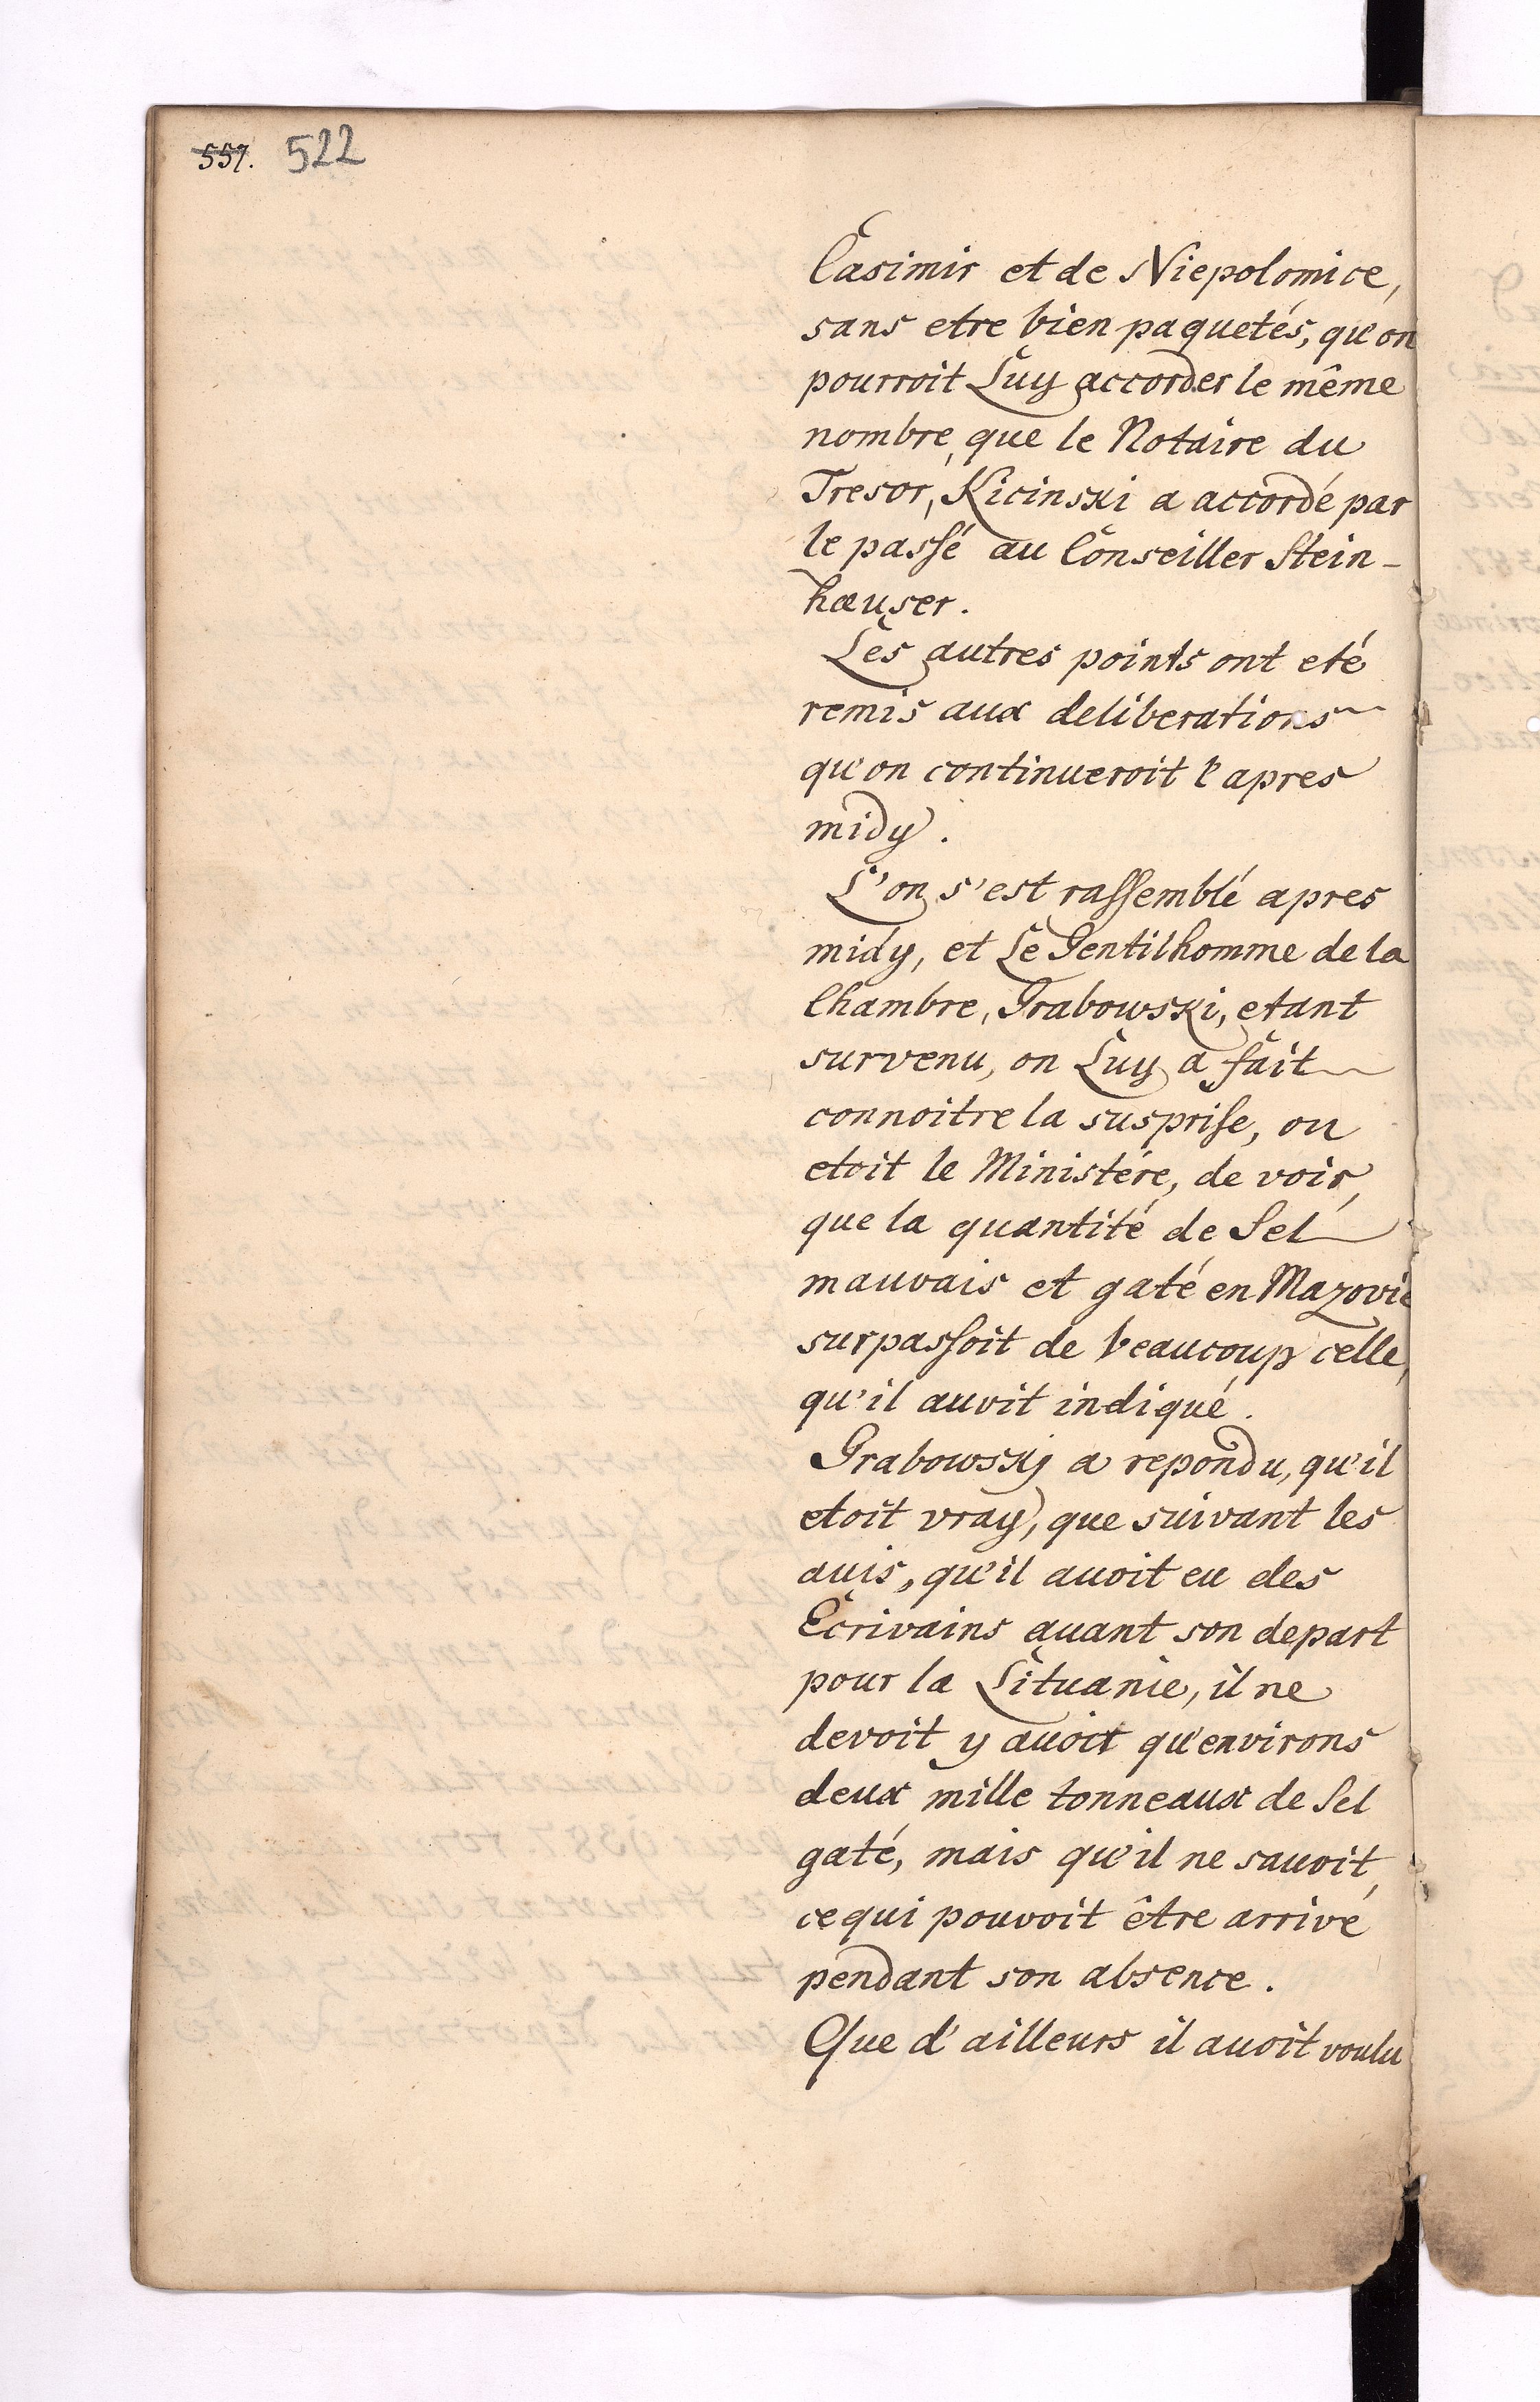 557. 522
Casimir et de Niepolomice,
sans etre bien paquetés, qu'on
pourroit Luy accorder le même
nombre, que le Notaire du
Tresor, Kicinski a accordé par
le passé au Conseiller Stein-
hæuser.
Les autres points ont eté
remis aux deliberations
qu'on continueroit l'apres
midy.
L'on s'est rassemblé apres
midy, et Le Gentilhomme de la
Chambre, Grabowski, etant
survenu, on Luy a fait
connoitre la surprise, ou
etoit le Ministére, de voir,
que la quantité de Sel
mauvais et gaté en Mazovie
surpassoit de beaucoup celle,
qu'il auoit indiqué.
Grabowskj a repondu, qu'il
etoit vray, que suivant les
auis, qu'il auoit eu des
Ecrivains auant son depart
pour la Lituanie, il ne
devoit y auoir qu'environs
deux mille tonneaux de Sel
gaté, mais qu'il ne sauoit,
ce qui pouvoit être arrivé
pendant son absence.
Que d'ailleurs il auoit voulu